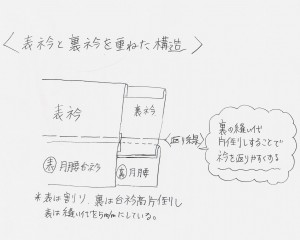 〈表衿と裏衿を重ねた構造〉
表衿
裏衿
返り線
表 月腰
裏 月腰
裏の縫い代
片倒しすることで
衿を返りやすくする
*表は割り、裏は台衿高片倒し
表は縫い代を5m/mにしている。